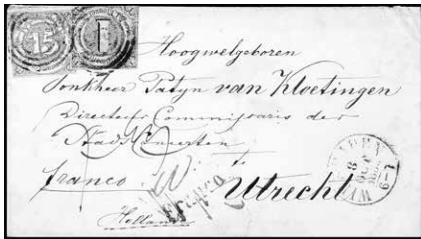 15 1
Hoogwelgeboren
Jonkheer Patyn van Kloetingen
Directeur Commissaris der
Stads Concerten
te
franco Utrecht
Franco
Holland